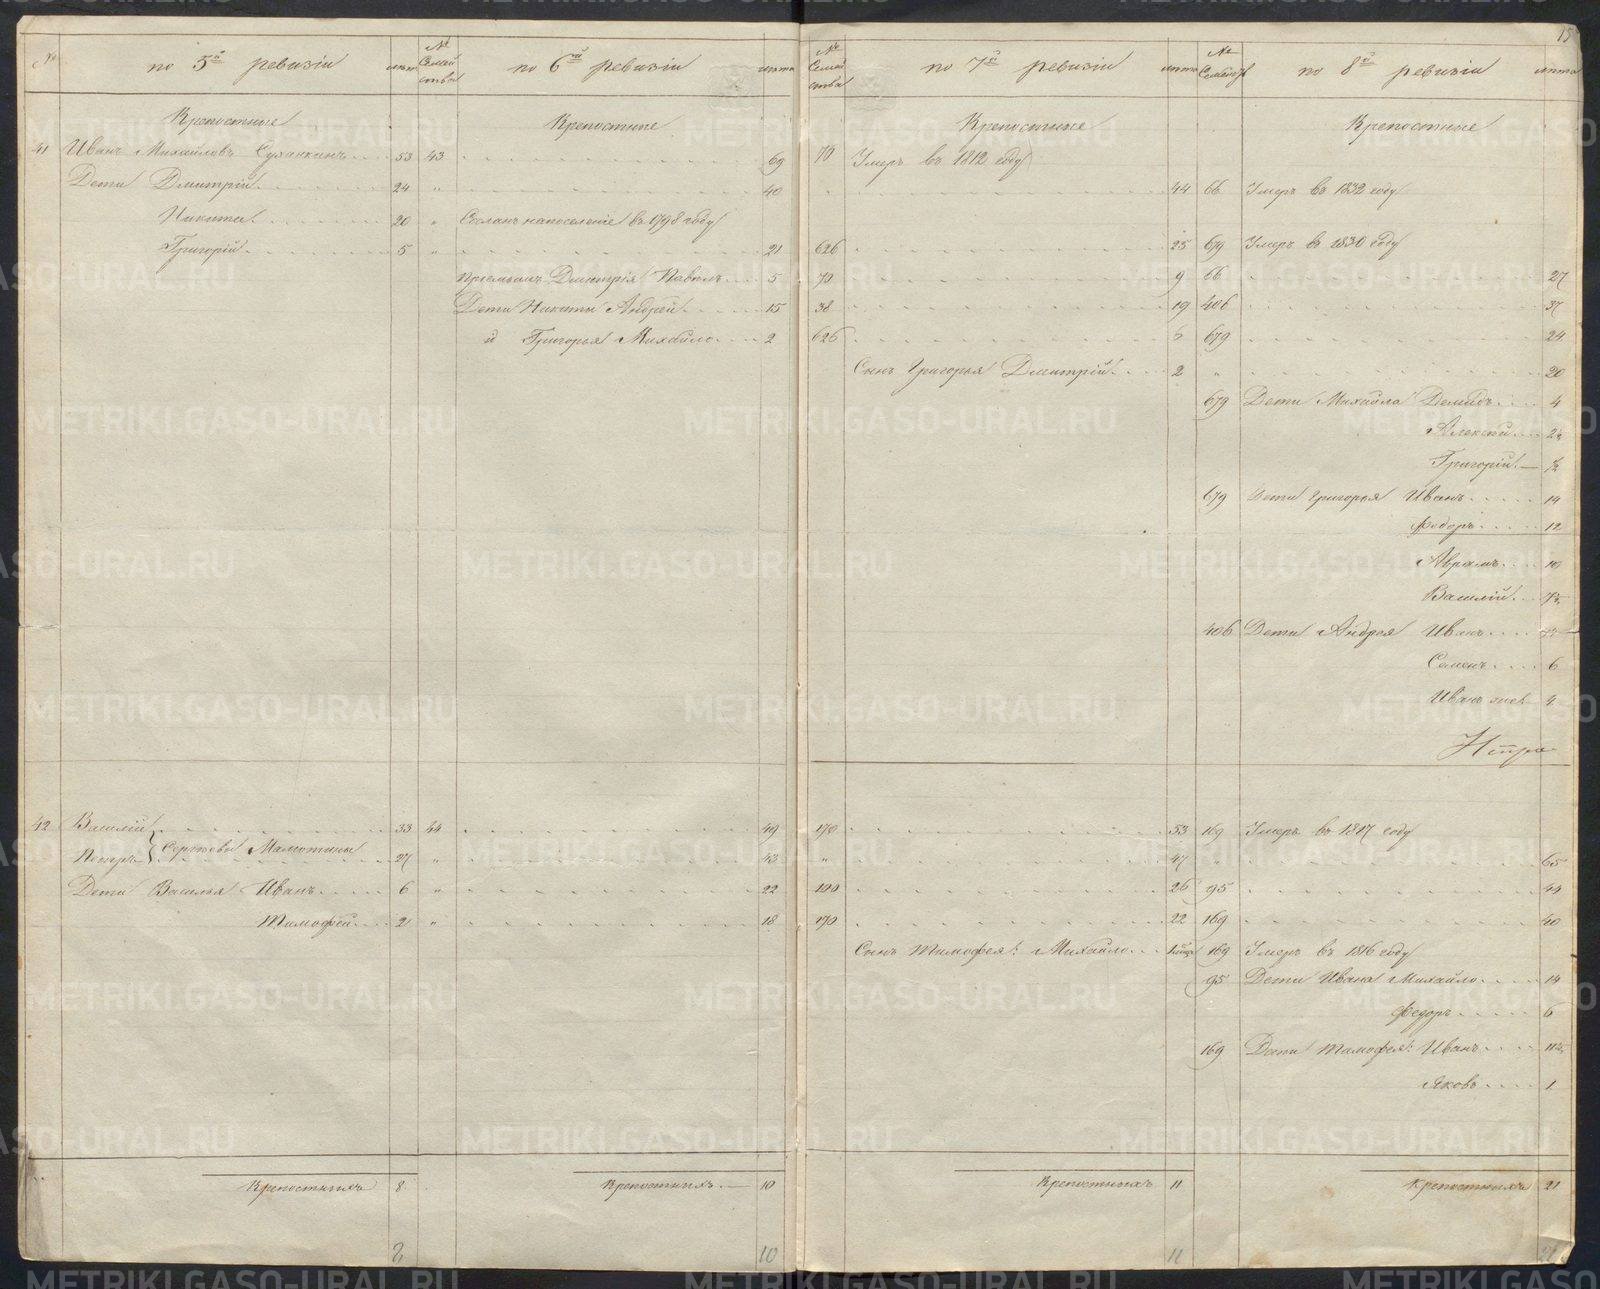 15
№ по 5й ревизіи лѣта № Семей ства по 6й ревизіи лѣта № Семей ства по 7й ревизіи лѣта № Семейст. по 8й ревизіи лѣта
Крепостные Крепостные Крепостные Крепостные
41 Иванъ Михайловъ Суханкинъ 53 43 69 70 Умеръ въ 1812 году
Дети Дмитрій 24 " 40 44 66 Умеръ въ 1832 году
Никита 20 " Сосланъ на поселеніе въ 1798 году
Григорій 5 " 21 626 25 679 Умеръ въ 1830 году
Пріемышъ Дмитрія Павелъ 5 70 9 66 27
Дети Никиты Андрей 15 38 19 406 37
и Григорья Михайло 2 626 6 679 24
Сынъ Григорья Дмитрій 2 " 20
679 Дети Михайла Демидъ 4
Алексей 2½
Григорій ½
679 Дети Григорья Иванъ 14
Федоръ 12
Аврамъ 10
Василій 7½
406 Дети Андрея Иванъ
Семенъ 6
Иванъ же 4
42 Василій 33 44 49 170 53 169 Умеръ въ 1817 году
Петръ Сергеевы Мамотины 27 " 43 " 47 65
Дети Василья Иванъ 6 " 22 100 26 95 44
Тимофей 2 " 18 170 22 169 40
Сынъ Тимофея: Михайло 169 Умеръ въ 1816 году
95 Дети Ивана Михайло 14
Федоръ 6
169 Дети Тимофея: Иванъ 11½
Яковъ 1
Крепостныхъ 8 Крепостныхъ 10 Крепостныхъ 11 Крепостныхъ 21
8 10 11 21
METRIKI.GASO-URAL.RU